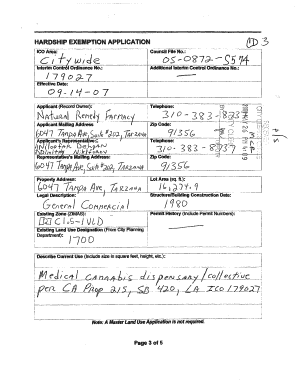 3
HARDSHIP EXEMPTION APPLICATION
ICO Area:
Citywide
Council File No.:
05-0872-S574
Interim Control Ordinance No.:
179027
Additional Interim Control Ordinance No.:
Effective Date:
09-14-07
Applicant (Record Owner):
Natural Remedy Farmacy
Telephone:
310-383-
Applicant Mailing Address
6047 Tampa Ave, Suite #202, Tarzana
Zip Code:
91356
Applicant's Representative:
Telephone:
310-383-
Representative's Mailing Address
6047 Tampa Ave, Suite #202, Tarzana
Zip Code:
91356
Property Address:
6047 Tampa Ave, Tarzana
Lot Area (sq. ft.):
16,274.9
Legal Description:
General Commercial
Structure/Building Construction Date:
1980
Existing Zone (ZIMAS):
C1.5-1VLD
Permit History (Include Permit Numbers):
Existing Land Use Designation (From City Planning Department):
1700
Describe Current Use (Include size in square feet, height, etc.):
Medical Cannabis dispensary/collective
per CA Prop 215, SB 420, LA ICO 179027
Note: A Master Land Use Application is not required.
Page 3 of 5